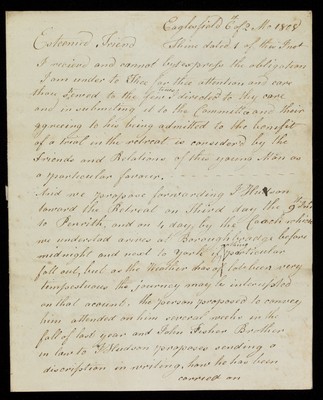 Eaglesfield 6th of 2 Mo 1808
Esteemed Friend Thine dated 1 of this Inst
I receivd and cannot but express the obligation
I am under to Thee for the attention and care
thou Seemed to the lines directed to thy care
and in submitting it to the Committee and their
agreeing to his being admitted to the benefit
of a trial in the retreat is considerd by the
Friends and Relations of this young Man as
a particular favour.
And we propose forwarding J Hudson
toward the Retreat on third day the 9th Inst
to Penrith, and on 4 day, by the Coach which
we understad arives at Boroughbridge before
midnight and next to York if nothing particular
fall out, but as the Weather has of late been very
tempestuous the journey may be interrupted
on that account, the person proposed to convey
him attended on him several weeks in the
fall of last year and John Fisher Brother
in law to J Hudson proposes sending a
discription in writing, how he has been
carried on